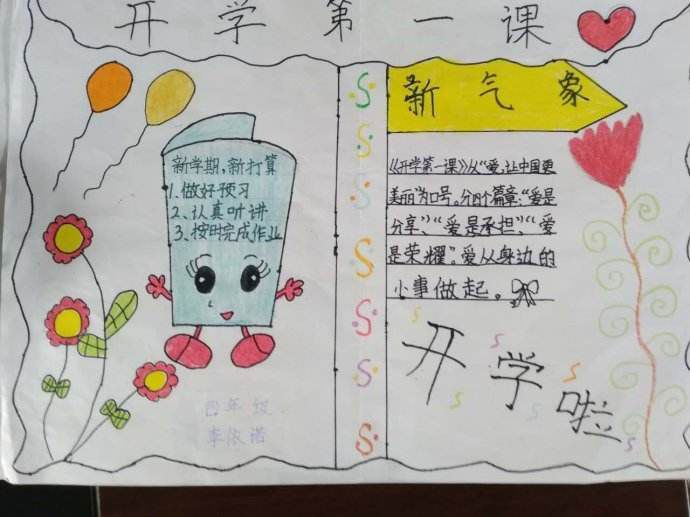 开学第一课
新学期,新打算
1.做好预习
2、认真听讲
3、按时完成作业
四年级
李依诺
新气象
《开学第一课》从“爱,让中国更
美丽”为口号。分四个篇章:“爱是
分享”、“爱是承担”、“爱
是荣耀”。爱从身边的
小事做起。
开学啦